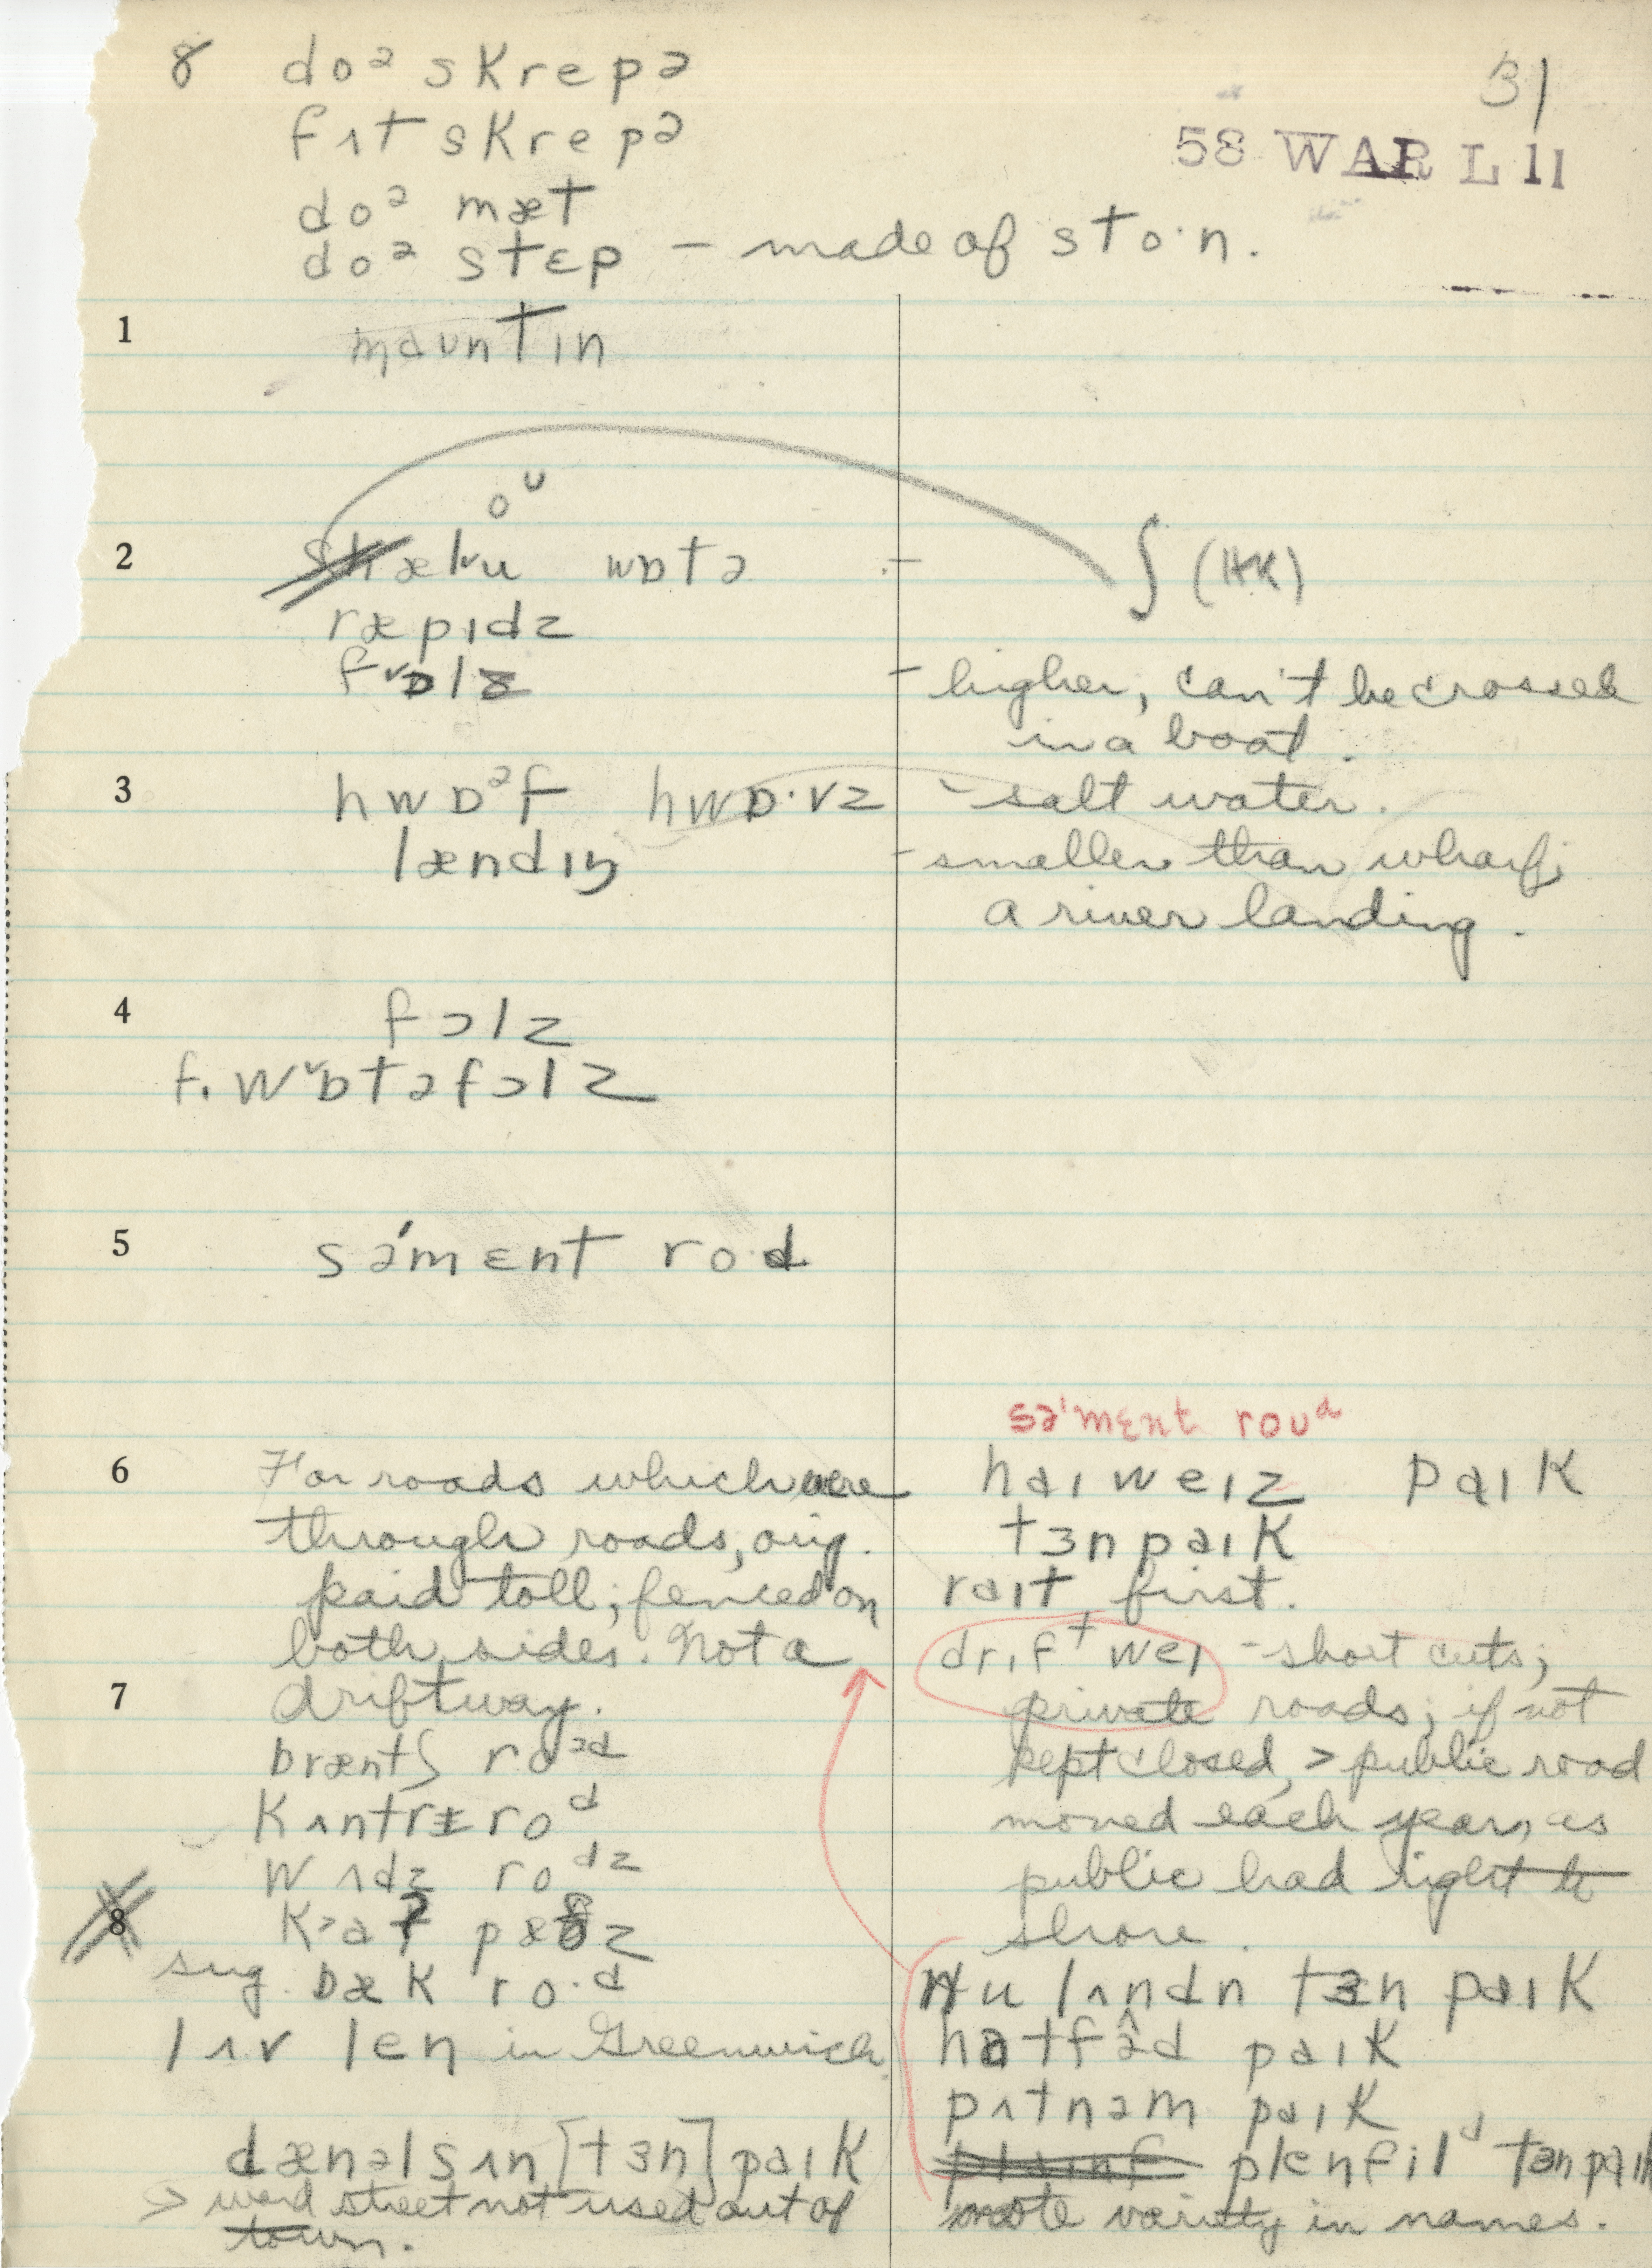 31
58 WAR L 11
8 doᵊ skrepə
fʌt skrepə
doᵊ mæt
doᵊ stɛp – made of sto·n.
1 mauntɪn
oᵁ
2 wɒtə – ʃ
ræpɪdz
fɒlz – higher, can't be crossed
in a boat.
3 hwɒᵊf hwɒ·vz – salt water.
lændɪŋ – smaller than wharf;
a river landing.
4 fɔlz
f. wɒtəfɔlz
5 sə'mɛnt rod
sə'mɛnt roᴜᵈ
6 For roads which were haɪweɪz paɪk
through roads, orig. tɜnpaɪk
paid toll; fenced on raɪt first.
both sides. Not a drɪfᵗweɪ – short cuts;
7 driftway. private roads; if not
bræntʃ roᵊᵈ kept closed, > public road
kʌntrɪ roᵈ moved each year, as
wʌdz roᵈᶻ public had right to
8 shore.
sug. bæk ro·ᵈ nu lʌndn tɜn paɪk
lʌv len in Greenwich. hatfəd paɪk
pʌtnəm paɪk
dænəlsʌn [tɜn] paɪk plenfilᵈ tɜnpaɪk
> word street not used out of note variety in names.
town.